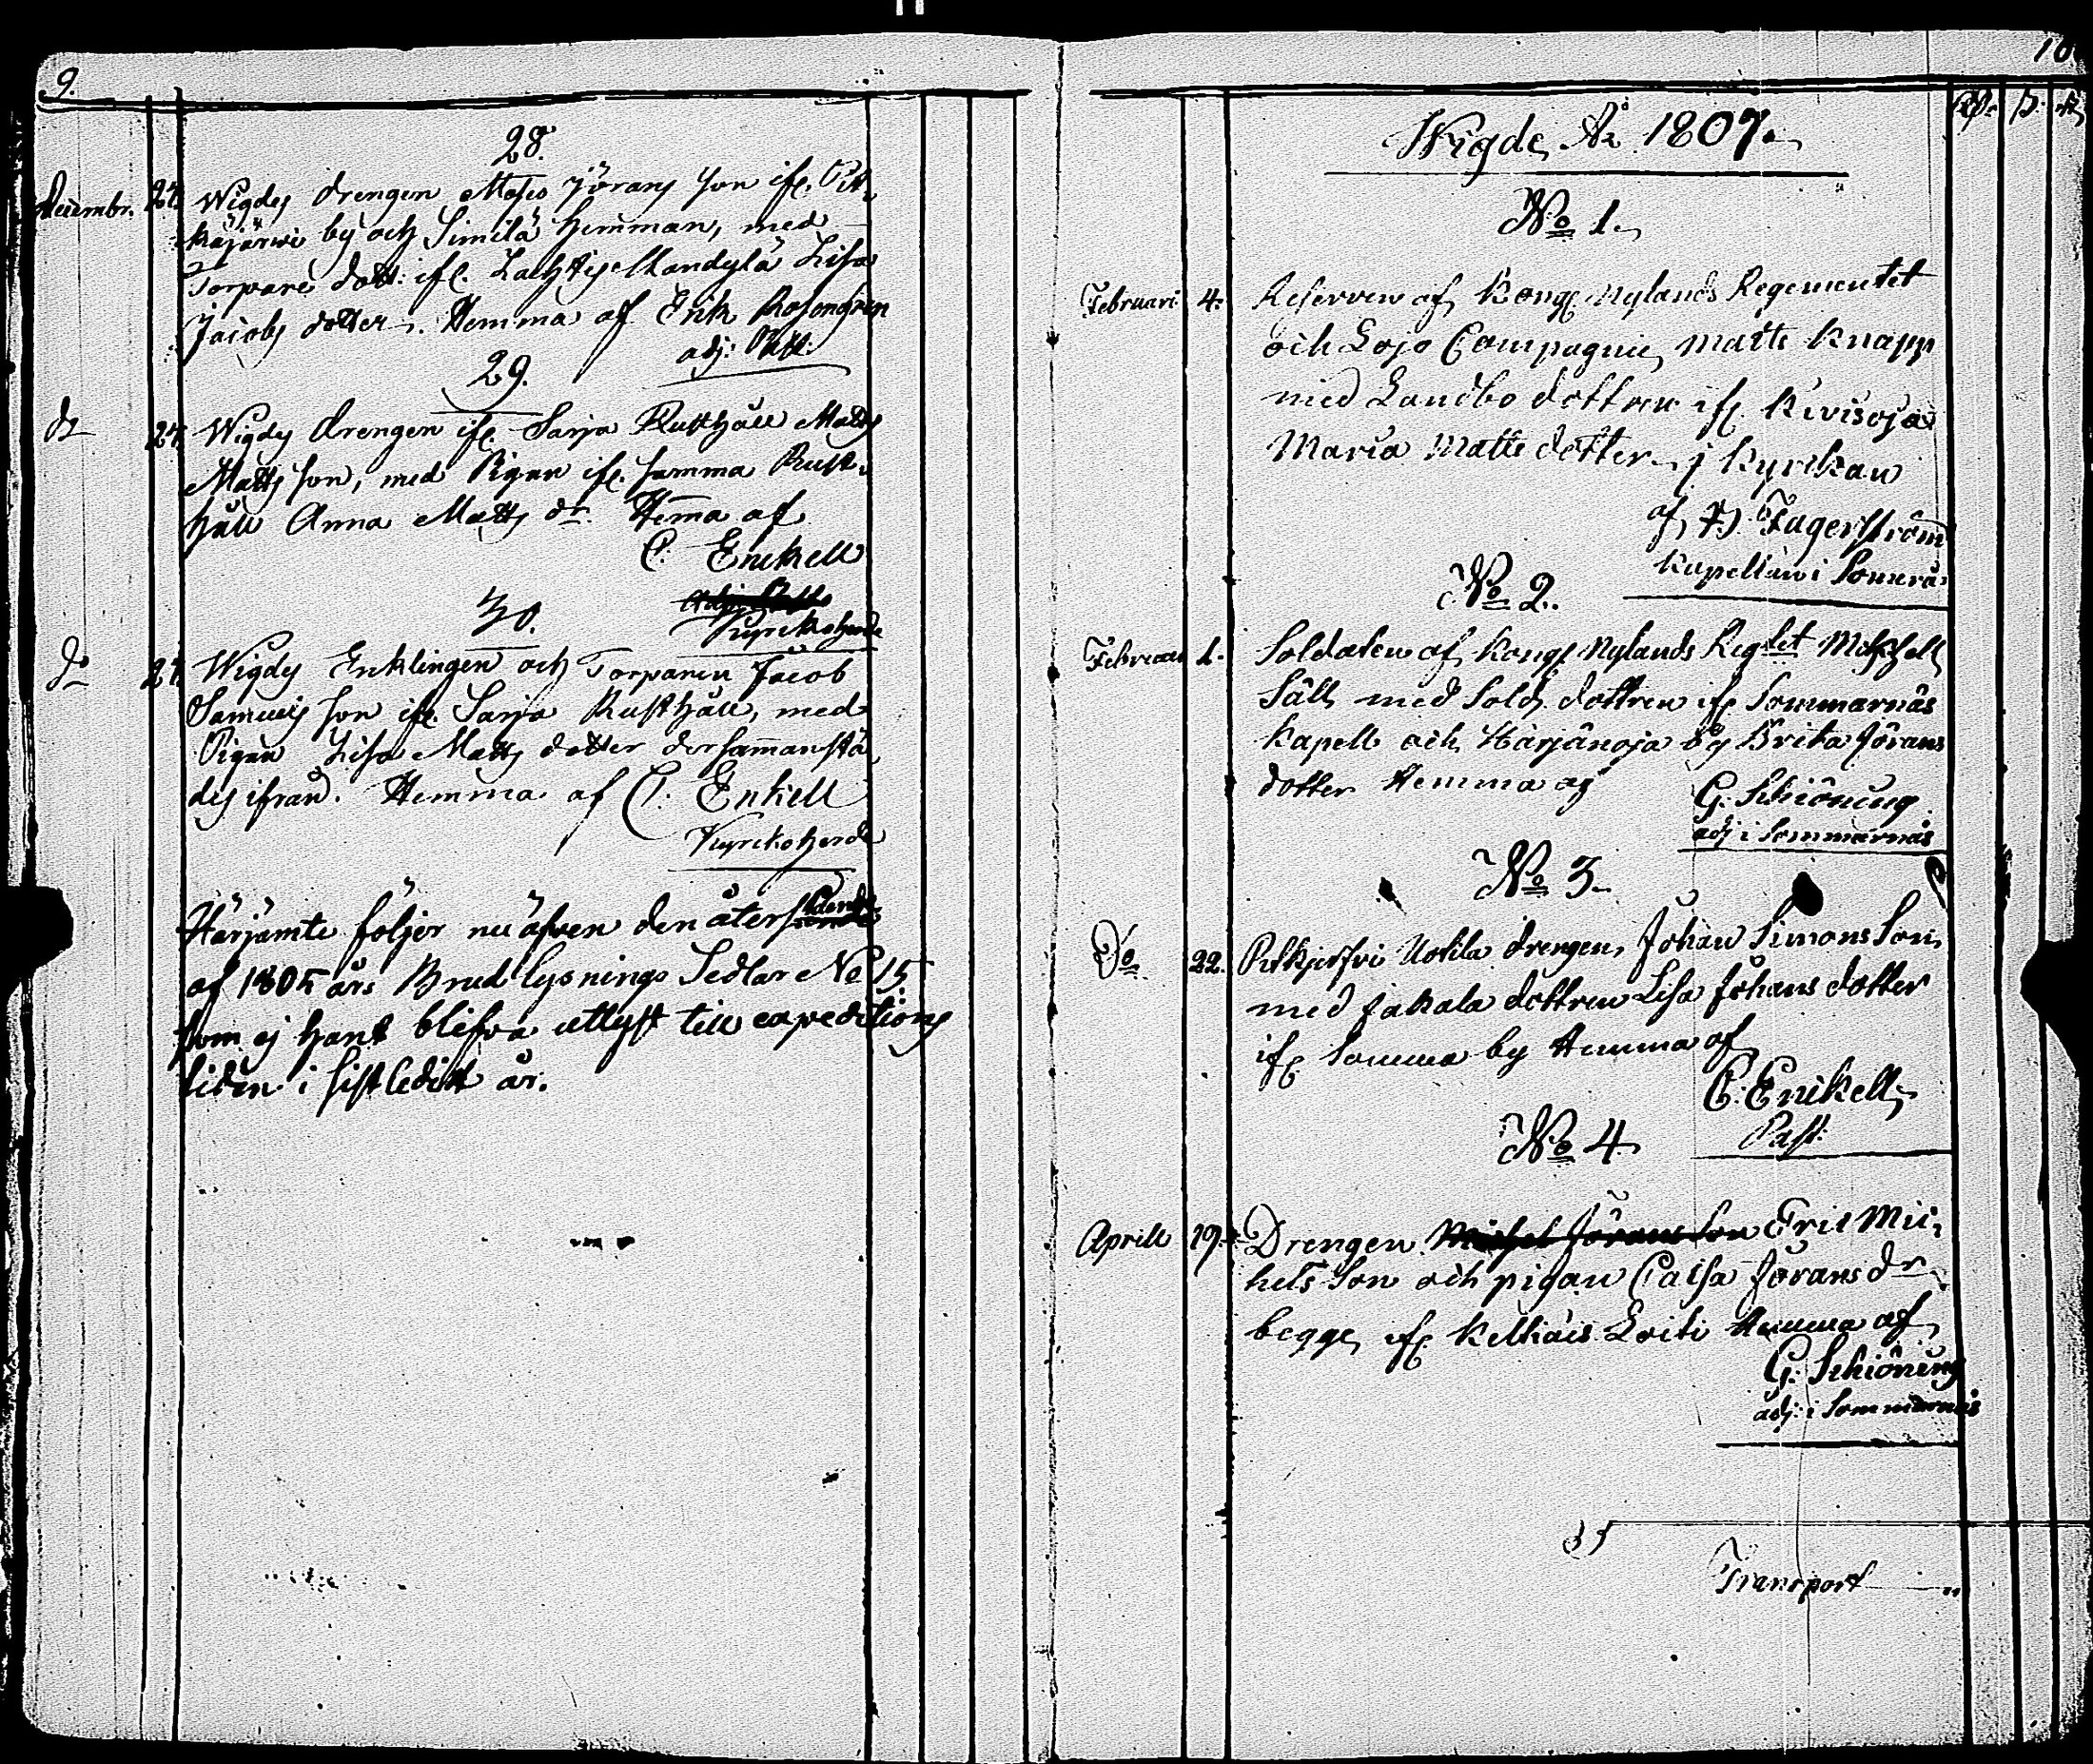 9.
28.
Decembr. 27. Wigdes drengen Mats Jörans son ifr. Pit-
käjärwi by och Similä Hemman, med
Torpare dott: ifr. Lachtis Lisa
Jacobs dotter. Hemma af Erik Rosengren
adj: Past:
29.
do 27. Wigdes drengen ifr. Sarja Rusthåll Matts
Matts son, med Pigan ifr. samma Rust-
håll Anna Matts dr. Hema af
C: Enckell
Kyrkoherde
30.
do 27. Wigdes Enklingen och Torparen Jacob
Samuels son ifr. Sarja Rusthåll, med
Pigan Lisa Matts dotter dersammanstä
des ifrån. Hemma af C: Enkell
Kyrkoherde
Härjämte följer nu äfven den återstående
af 1805 års Brudlysnings Sedlar No 15
som ej hant blifva utlyst till expeditions
tiden i sistledit år.
10
Rdr. ß. rs
Wigde År 1807.
No 1.
Februari 4. Reserven af Kongl. Nylands Regementet
och Lojo Compagnie, Matts Knapp
med Landbo dottren ifr. Kivisoja
Maria Matts dotter j Kyrckan
af Fagerström
Kapellan i Somerä
No 2.
Februari 1. Soldaten af Kongl. Nylands Regtet Michell
Säll med Sold. dottren ifr Sommarnäs
Kapell och Härjänoja by Brita Jörans
dotter Hemma af
G: Schiöning
adj i Sommarnäs
No 3.
Do 22. Uotila drengen Johan Simons Son
med Jakala dottren Lisa Johans dotter
ifr samma by Hemma af
C. Enckell
Past:
No 4
Aprill 19. Drengen Michel Jörans Son Eric Mic-
hels Son och pigan Caisa Jörans dr
begge ifr Keltiäis Hemma af
G: Schiöning
adj: i Sommarnäs
Transport